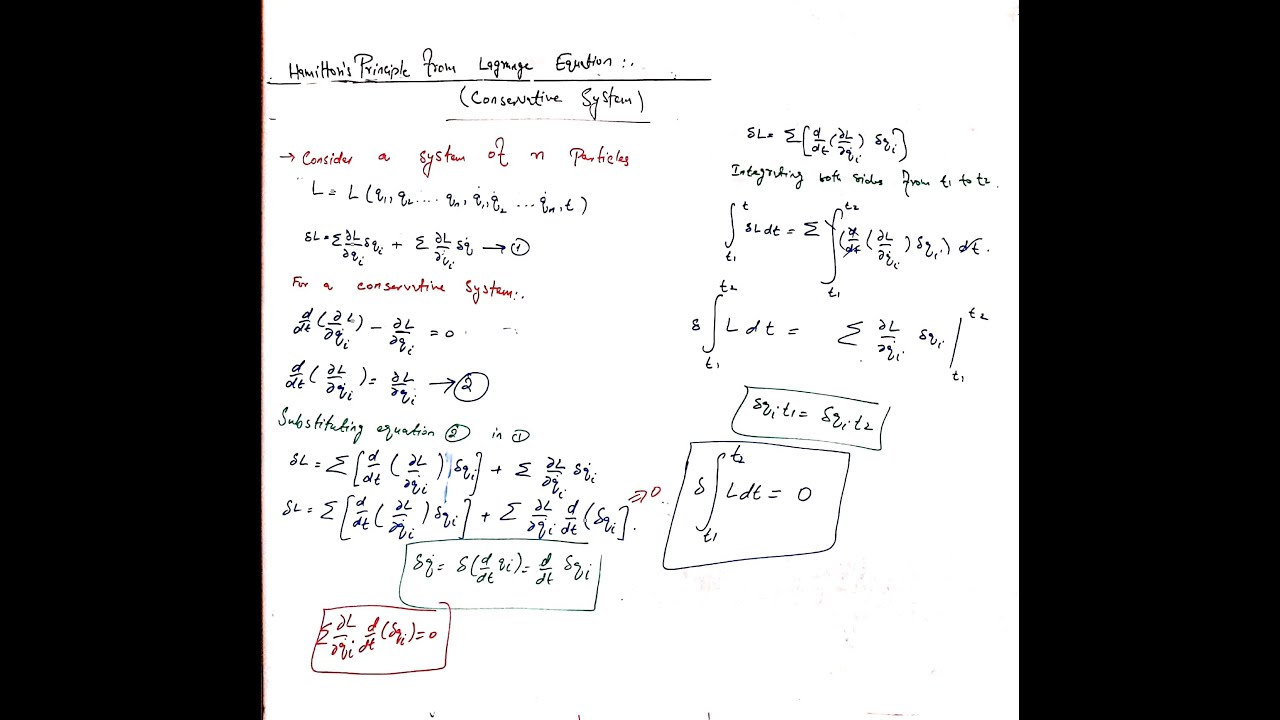 Hamilton's Principle from Lagrange Equation :.
(Conservative System)
→ Consider a system of n Particles
L = L (q₁, q₂ .... qₙ, q̇₁, q̇₂ ... q̇ₙ, t)
δL = Σ ∂L/∂qᵢ δqᵢ + Σ ∂L/∂q̇ᵢ δq̇ → ①
For a conservative System:.
d/dt (∂L/∂q̇ᵢ) − ∂L/∂qᵢ = 0
d/dt (∂L/∂q̇ᵢ) = ∂L/∂qᵢ → ②
Substituting equation ② in ①
δL = Σ [d/dt (∂L/∂q̇ᵢ) δqᵢ] + Σ ∂L/∂q̇ᵢ δq̇ᵢ
δL = Σ [d/dt (∂L/∂q̇ᵢ) δqᵢ] + Σ ∂L/∂q̇ᵢ d/dt (δqᵢ]. ⇒ 0
δq̇ = δ(d/dt qᵢ) = d/dt δqᵢ
Σ ∂L/∂q̇ᵢ d/dt (δqᵢ) = 0
δL = Σ [d/dt (∂L/∂q̇ᵢ) δqᵢ]
Integrating both sides from t₁ to t₂.
∫ₜ₁ᵗ δL dt = Σ ∫ₜ₁ᵗ² (d/dt (∂L/∂q̇ᵢ) δqᵢ) dt.
δ ∫ₜ₁ᵗ² L dt = Σ ∂L/∂q̇ᵢ δqᵢ |ₜ₁ᵗ²
δqᵢ t₁ = δqᵢ t₂
δ ∫ₜ₁ᵗ² L dt = 0